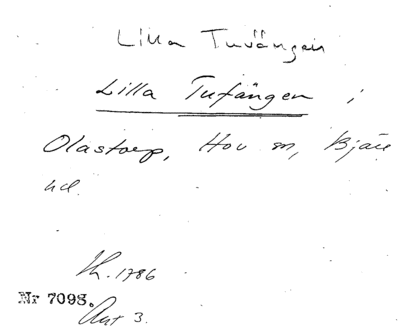 Lilla Tuvängen
Lilla Tufängen i
Olastorp, Hov sn, Bjäre
hd.
1786
Nr 7098.
Akt 3.